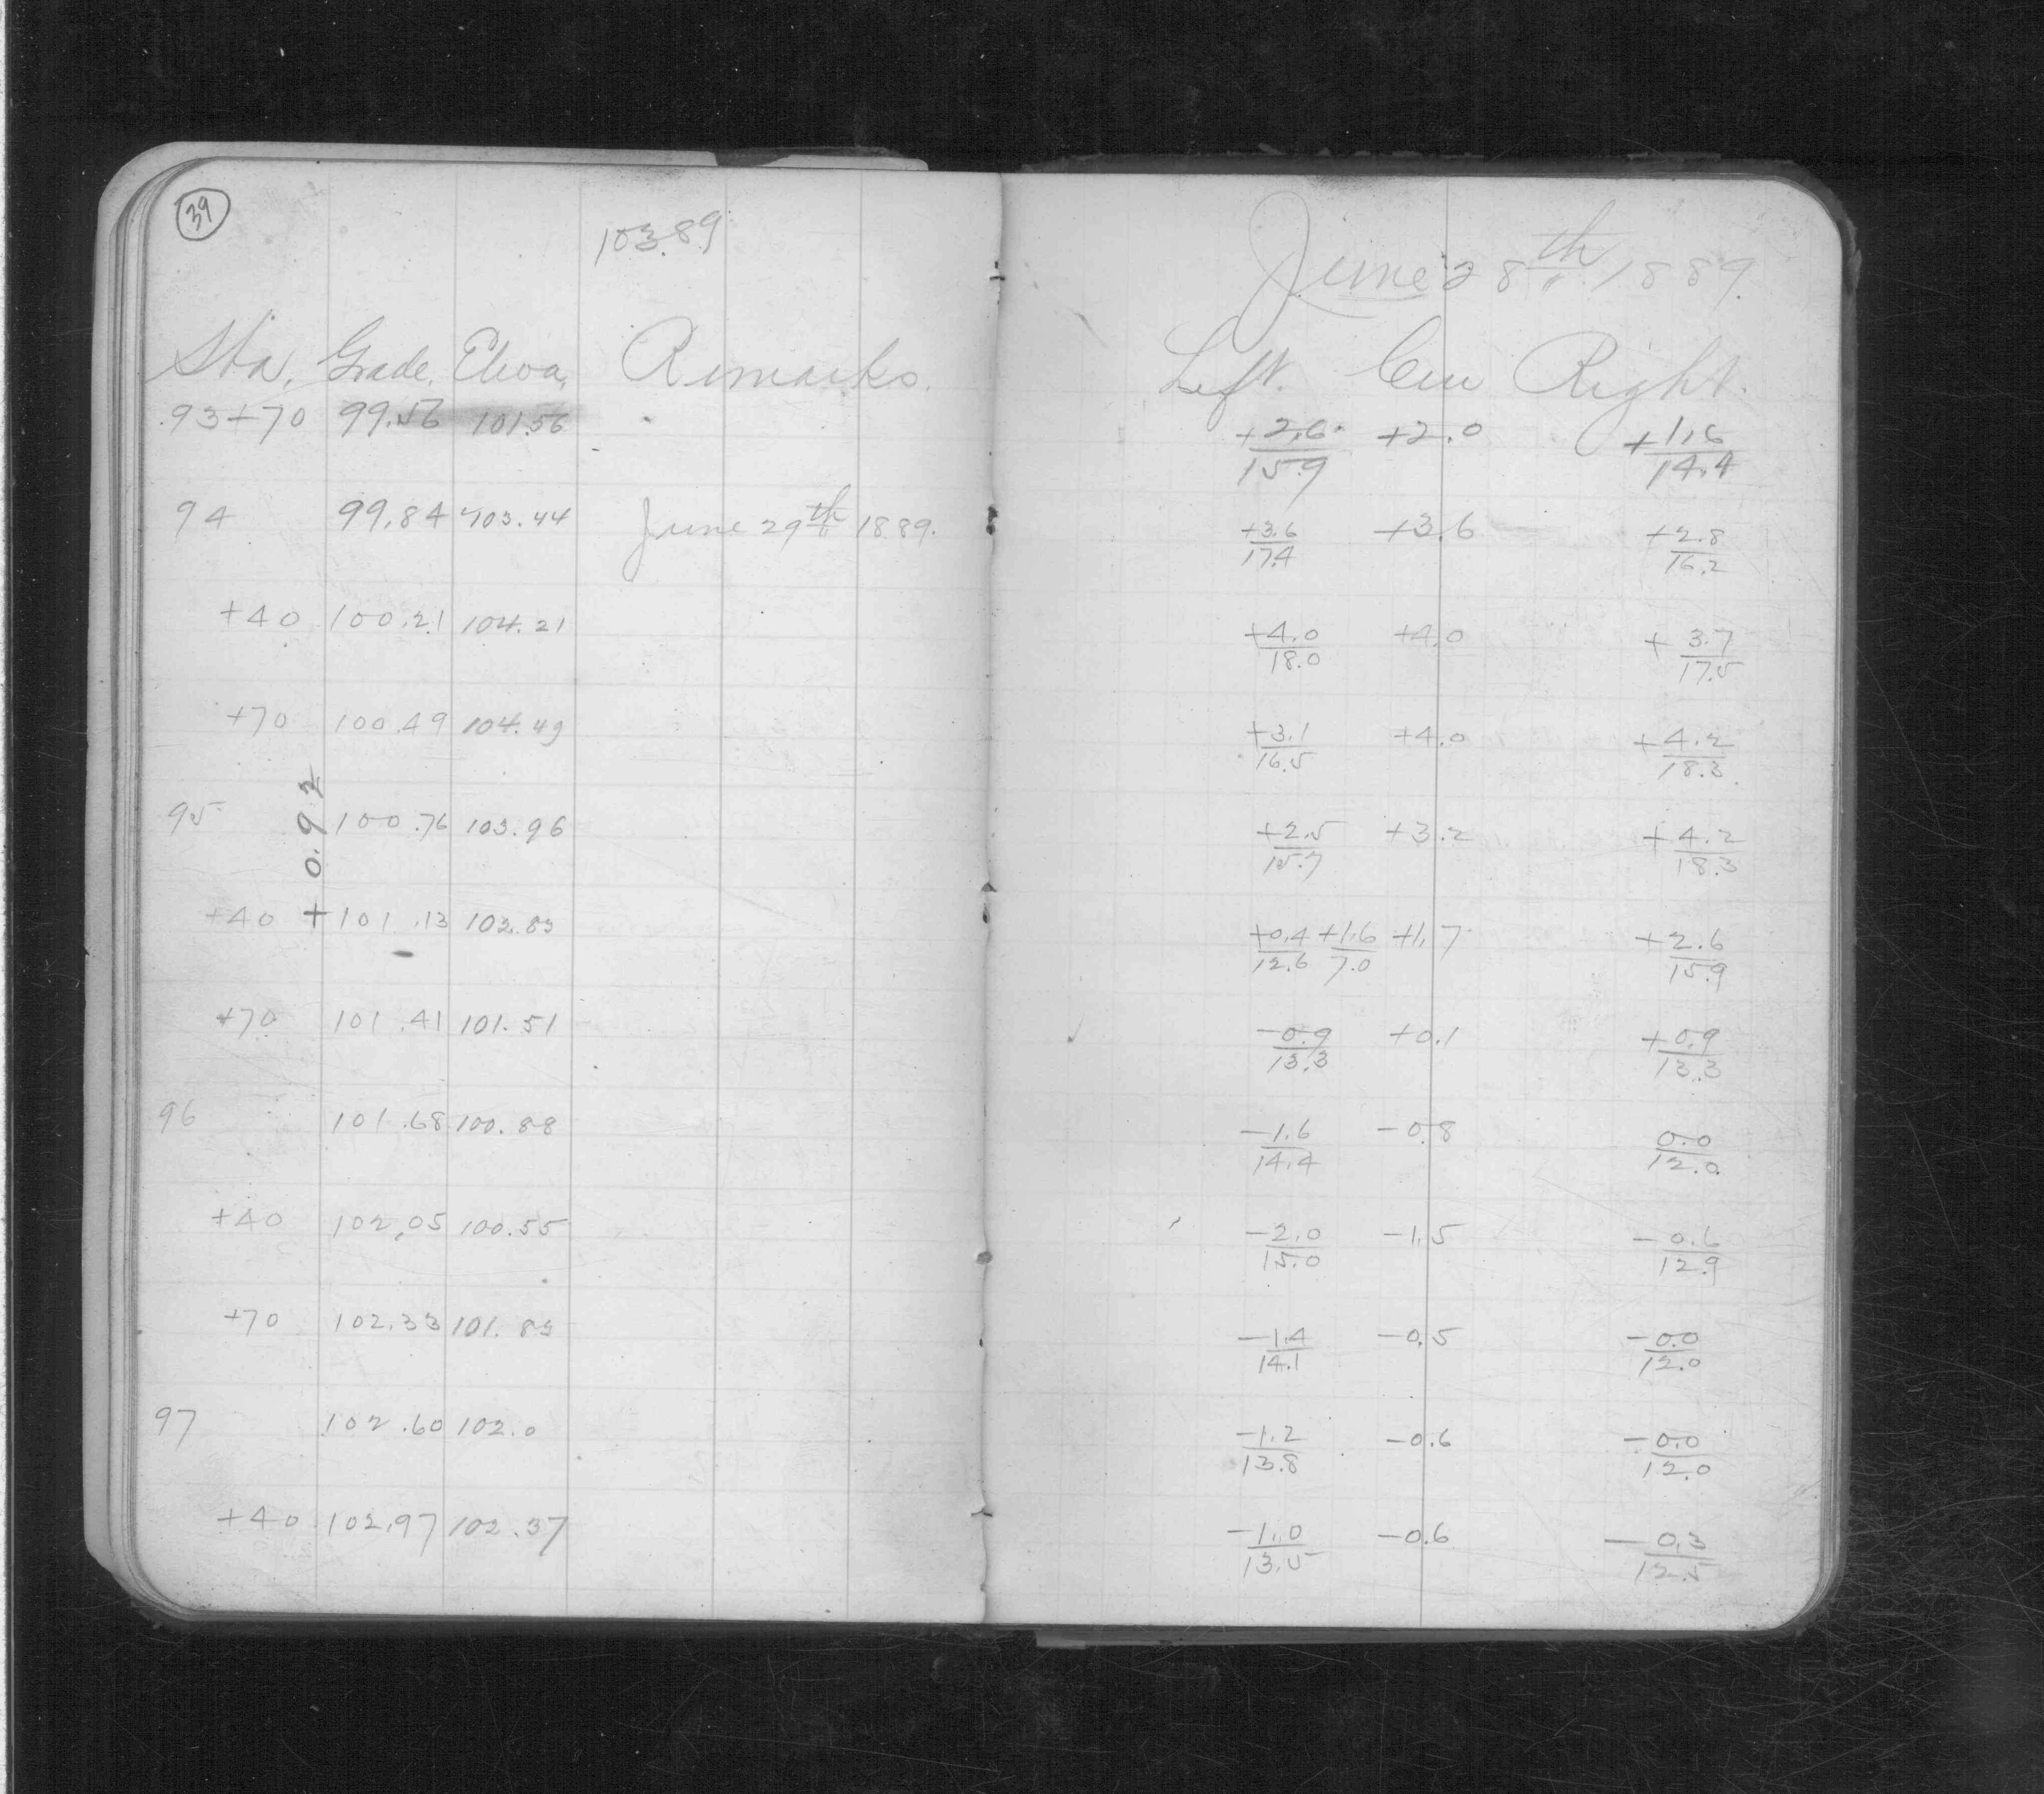 39
103.89
June 28th 1889.
Sta. Grade. Eleva. Remarks. Left. Cen Right.
93+70 99.56 101.56 +2.6/15.9 +2.0 +1.6/14.4
94 99.84 103.44 June 29th 1889. +3.6/17.4 +3.6 +2.8/16.2
+40 100.21 104.21 +4.0/18.0 +4.0 +3.7/17.5
+70 100.49 104.49 +3.1/16.5 +4.0 +4.2/18.3
95 100.76 103.96 +2.5/15.7 +3.2 +4.2/18.3
+0.92
+40 101.13 102.83 +0.4/12.6 +1.6/7.0 +1.7 +2.6/15.9
+70 101.41 101.51 -0.9/13.3 +0.1 +0.9/13.3
96 101.68 100.88 -1.6/14.4 -0.8 0.0/12.0
+40 102.05 100.55 -2.0/15.0 -1.5 -0.6/12.9
+70 102.33 101.83 -1.4/14.1 -0.5 -0.0/12.0
97 102.60 102.0 -1.2/13.8 -0.6 -0.0/12.0
+40 102.97 102.37 -1.0/13.5 -0.6 -0.3/12.5